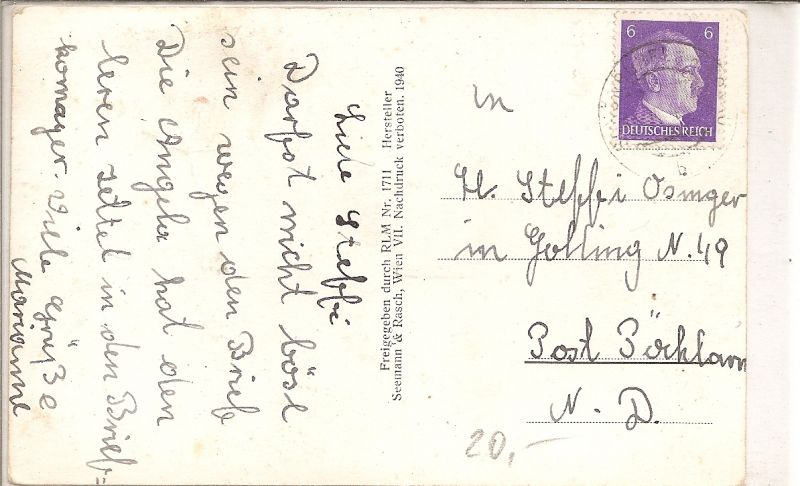 Liebe Steffi
Darfst nicht bösl
sein wegen den Brief
Die Angela hat den
leren zettel in den Brief=
komager. Viele Grüße
Marianne
Freigegeben durch RLM Nr. 1711 Hersteller
Seemann & Rasch, Wien VII. Nachdruck verboten. 1940
6 6
DEUTSCHES REICH
An
Steffi Osinger
in Golling N. 49
Post Pöchlarn
N. D.
20,-